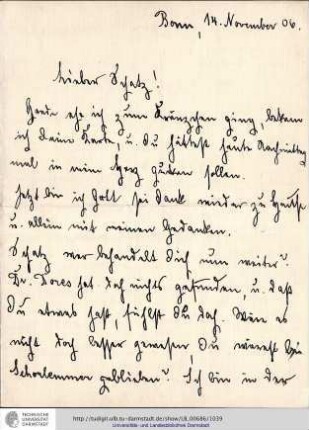 Bonn, 14. November 06.
Lieber Schatz!
Heute ehe ich zum Kränzchen ging, bekam
ich Deine Karte, u. Du hättest heute Nachmittag
mal in mein Herz gucken sollen.
Jetzt bin ich Gott sei Dank wieder zu Hause
u. allein mit meinen Gedanken.
Schatz wer behandelt Dich nun weiter?
Dr. hat doch nichts gefunden, u. daß
Du etwas hast, fühlst Du doch. Wäre es
nicht doch besser gewesen, Du wärest bei
Schorlemmer geblieben? Ich bin in der
TECHNISCHE
UNIVERSITÄT
DARMSTADT
http://tudigit.ulb.tu-darmstadt.de/show/ULB0686/1039
Universitäts- und Landesbibliothek Darmstadt